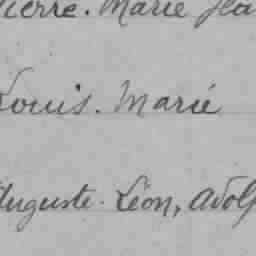 Pierre. Marie Jea
Louis. Marie
Auguste. Léon, Adolp